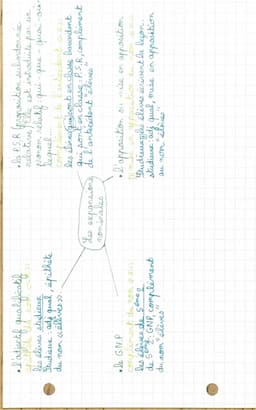 les expansions
nominales
• l'adjectif qualificatif
les élèves studieux
studieux : adj qual, épithète
du nom "élèves"
• le G.N.P
les élèves de 5ème 2
de 5ème 2 : GNP, complément
du nom "élèves"
• la P.S.R (proposition subordonnée
relative). Elle est introduite par un
pronom relatif qui - que - quoi - où -
lequel...
les élèves qui sont en classe bavardent
qui sont en classe : P.S.R, complément
de l'antécédent "élèves"
• l'apposition ou mise en apposition
Studieux, les élèves écrivent la leçon.
studieux : adj qual, mise en apposition
au nom "élèves"